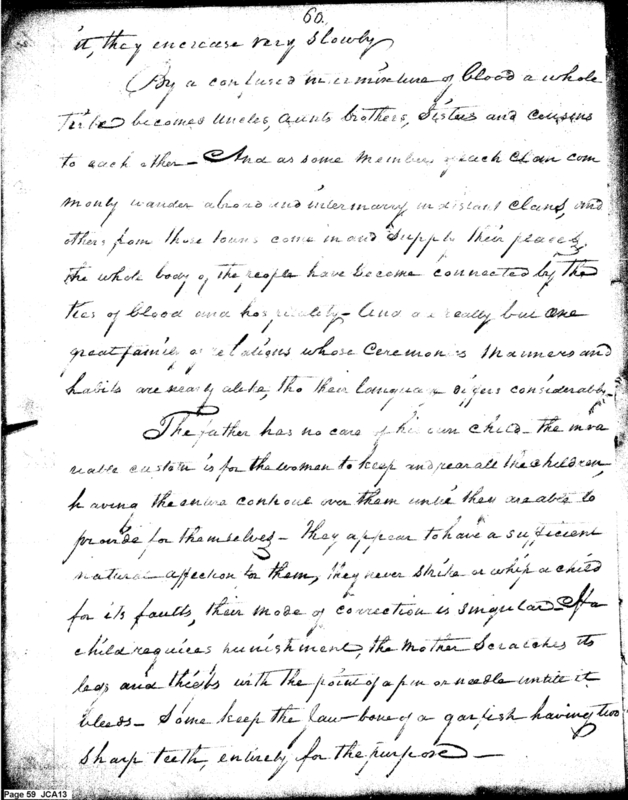 60.
it, they increase very slowly
By a confused intermixture of blood a whole
Tribe becomes Uncles, Aunts brothers, Sisters and Cousins
to each other – And as some members of each Clan com
monly wander abroad and intermarry in distant Clans, and
others from those towns come in and Supply their places,
the whole body of the people have become connected by the
ties of blood and hospitality – And are really but one
great family of relations whose Ceremonies Manners and
habits are nearly alike, tho their language differs considerably
The father has no care of his own child – the inva
riable custom is for the women to keep and rear all the children,
having the entire controul over them until they are able to
provide for themselves – They appear to have a sufficient
natural affection for them, they never strike or whip a child
for its faults, their mode of correction is singular – If a
child requires punishment, the Mother Scratches its
legs and thighs with the point of a pin or needle untill it
bleeds – Some keep the jaw-bone of a garfish having two
sharp teeth, entirely for the purpose –
Page 59 JCA13